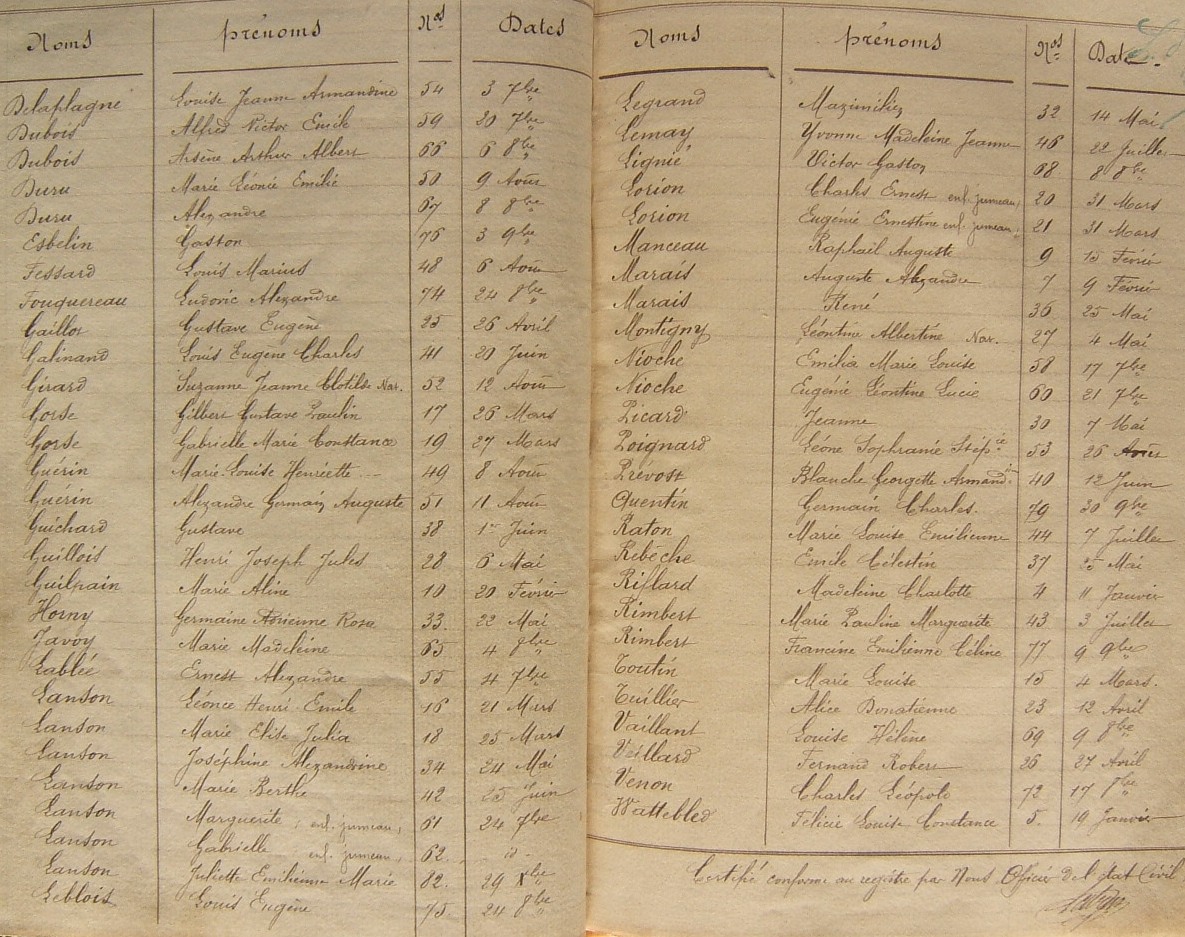 Noms prénoms Nos Dates
Delaplagne Louise Jeanne Armandine 54 3 7bre
Dubois Alfred Victor Emile 59 20 7bre
Dubois Arsène Arthur Albert 66 6 8bre
Duru Marie Léonie Emilie 50 9 Août
Duru Alexandre 67 8 8bre
Esbelin Gaston 76 3 9bre
Fessard Louis Marius 48 6 Août
Fouquereau Ludovic Alexandre 74 24 8bre
Gaillot Gustave Eugène 25 26 Avril
Galinand Louis Eugène Charles 41 20 Juin
Girard Suzanne Jeanne Clotilde Nat. 52 12 Août
Gorse Gilbert Gustave Paulin 17 26 Mars
Gorse Gabrielle Marie Constance 19 27 Mars
Guérin Marie-Louise Henriette 49 8 Août
Guérin Alexandre Germain Auguste 51 11 Août
Guichard Gustave 38 1er Juin
Guillois Henri Joseph Jules 28 6 Mai
Guilpain Marie Aline 10 20 Février
Horny Germaine Adrienne Rosa 33 22 Mai
Javoy Marie Madeleine 65 4 8bre
Lablée Ernest Alexandre 55 4 7bre
Lanson Léonce Henri Emile 16 21 Mars
Lanson Marie Elise Julia 18 25 Mars
Lanson Joséphine Alexandrine 34 24 Mai
Lanson Marie Berthe 42 25 Juin
Lanson Marguerite enf. jumeau 61 24 7bre
Lanson Gabrielle enf. jumeau 62 id
Lanson Juliette Emilienne Marie 82 29 Xbre
Leblois Louis Eugène 75 24 8bre
Noms prénoms Nos Date
Legrand Maximilien 32 14 Mai
Lemay Yvonne Madeleine Jeanne 46 22 Juillet
Lignié Victor Gaston 68 8 8bre
Lorion Charles Ernest enf. jumeau 20 31 Mars
Lorion Eugénie Ernestine enf. jumeau 21 31 Mars
Manceau Raphaël Auguste 9 15 Février
Marais Auguste Alexandre 7 9 Février
Marais René 36 25 Mai
Montigny Léontine Albertine Nat. 27 4 Mai
Nioche Emilia Marie Louise 58 17 7bre
Nioche Eugénie Léontine Lucie 60 21 7bre
Picard Jeanne 30 7 Mai
Poignard Léone Sophranie Stépie 53 26 Août
Prévost Blanche Georgette Armande 40 12 Juin
Quentin Germain Charles 79 30 9bre
Raton Marie Louise Emilienne 44 7 Juillet
Rebèche Emile Célestin 37 25 Mai
Riflard Madeleine Charlotte 4 11 Janvier
Rimbert Marie Pauline Marguerite 43 3 Juillet
Rimbert Francine Emilienne Céline 77 9 9bre
Toutin Marie Louise 15 4 Mars.
Tuillier Alice Donatienne 23 12 Avril
Vaillant Louise Hélène 69 9 8bre
Veillard Fernand Robert 26 27 Avril
Venon Charles Léopold 72 17 8bre
Wattebled Félicie Louise Constance 5. 19 Janvier
Certifié conforme au registre par Nous Officier de l'état Civil